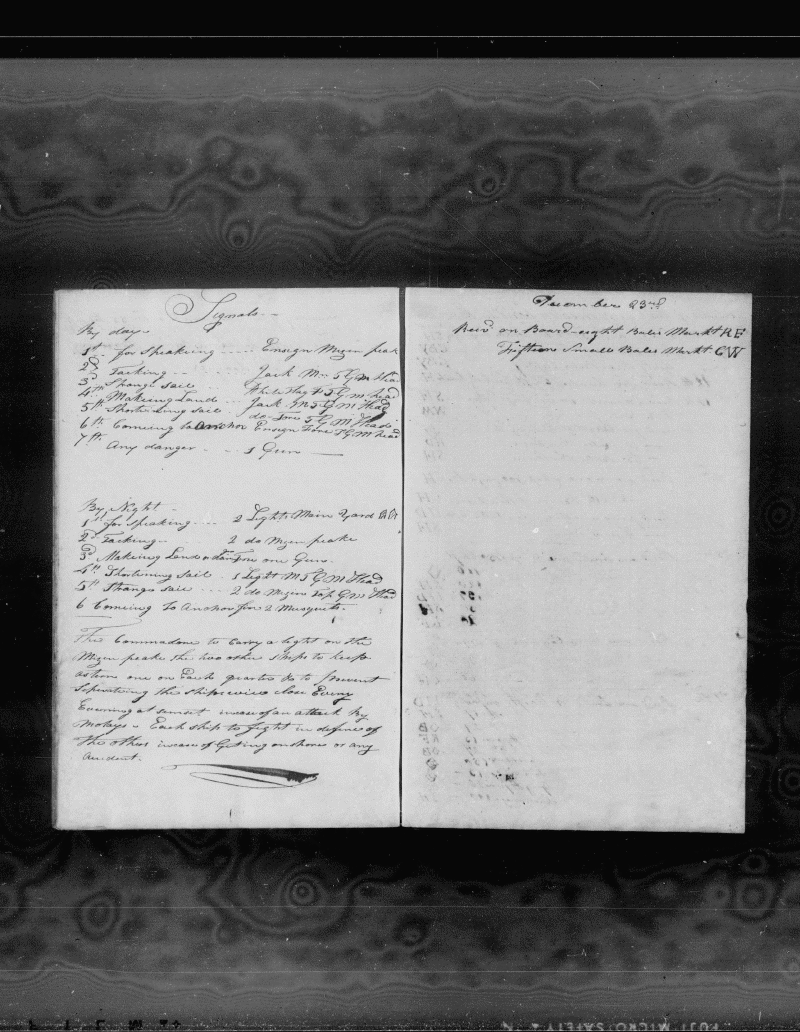 Signals
By day
1st for Speaking ..... Ensign Mizen peak
2d Tacking .. Jack Mn T G M Head
3d Strange sail White Flag F T G M head
4th Making Land .. Jack Mn T G M Head
5th Shortening sail .. do Fore T G M Head
6th Comeing to Anchor Ensign Fore T G M head
7th Any danger .. 1 Gun
By Night
1st for Speaking .... 2 Lights Main Yard
2d Tacking.. 2 do Mizen peake
3d Making Land a Lantern one Gun.
4th Shortening Sail .. 1 Light M T G M Head
5th Strange sail .... 2 do Mizen Top G M Head
6 Comeing to Anchor fire 2 Musquets.
The Commadore to Carry a light on the
Mizen peake the two other ships to keep
astern one on Each quarter & to prevent
Seperating the ships wile close Every
Evening at sunset incase of an attack by
Molays - Each ship to fight in defince of
the others incase of Geting on shore or any
Accident.
December 23rd
Recd on Board eight Bales Markt RE
Fifteen Small Bales Markt CW
FUJI MICRO SAFETY